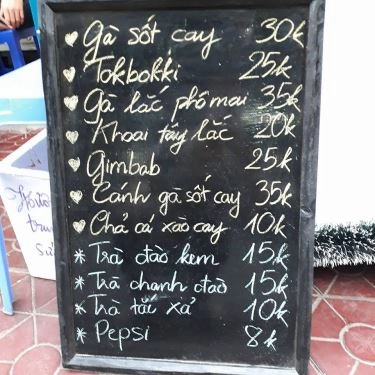 ♥ Gà sốt cay 30k
♥ Tokbokki 25k
♥ Gà lắc phô mai 35k
♥ Khoai tây lắc 20k
♥ Gimbab 25k
♥ Cánh gà sốt cay 35k
♥ Chả cá xào cay 10k
* Trà đào kem 15k
* Trà chanh đào 15k
* Trà tắc xả 10k
* Pepsi 8k